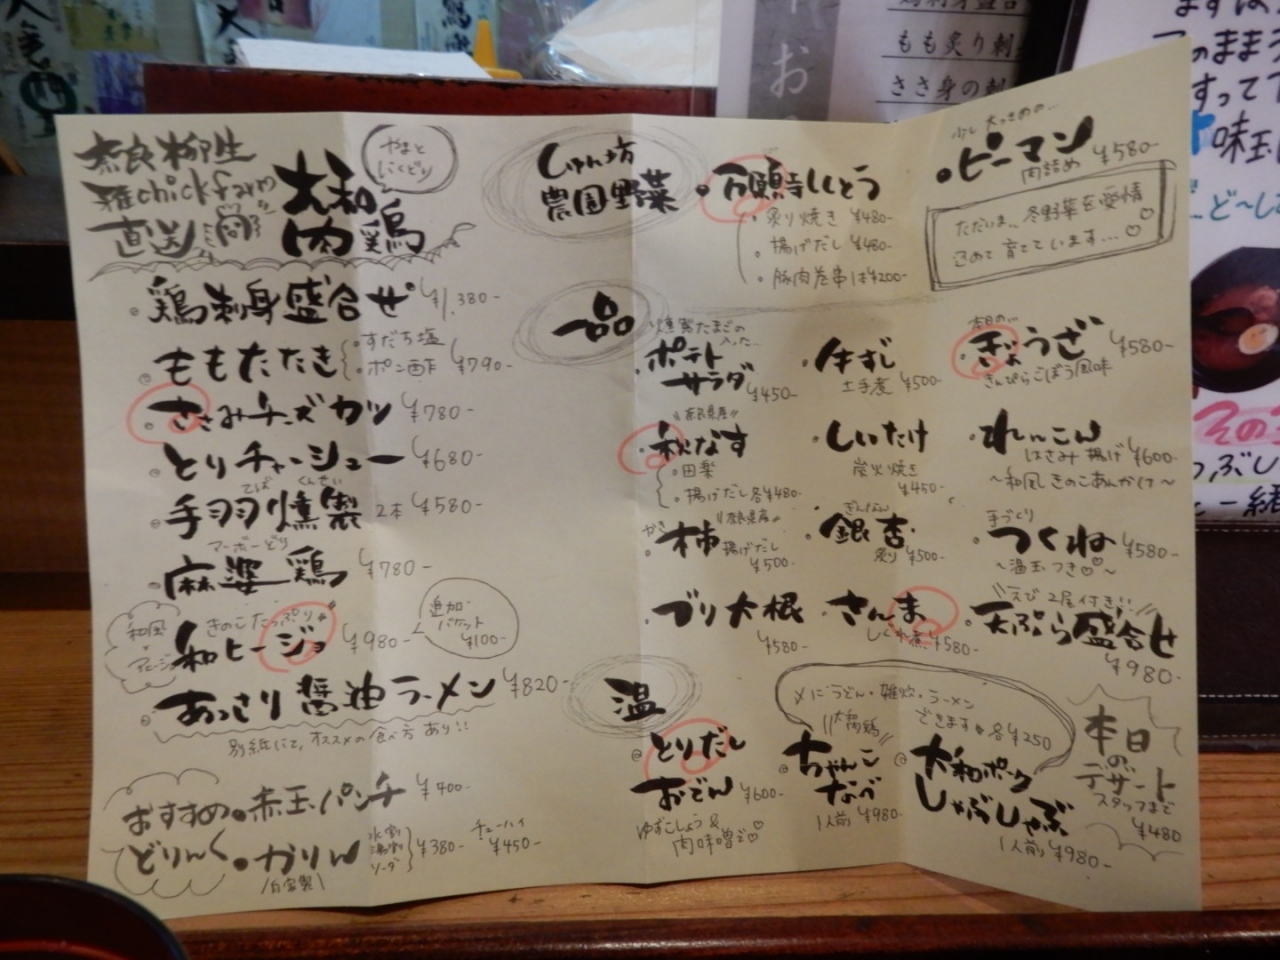 奈良柳生
雅chickfarm
直送
大和
肉鶏
やまと
にくどり
鶏刺身盛合せ ¥1,380-
ももたたき
すだち塩
ポン酢
¥790-
ささみチーズカツ ¥780-
とりチャーシュー ¥680-
てば くんせい
手羽燻製 2本 ¥580-
マーボーどり
麻婆鶏 ¥780-
和風
アヒージョ
きのこたっぷり
和ヒージョ ¥980-
追加
バケット
¥100-
あっさり醤油ラーメン ¥820-
別紙にて、オススメの食べ方あり!!
おすすめの
どりんく
赤玉パンチ ¥400-
かりん
自家製
水割
湯割
ソーダ
¥380-
チューハイ
¥450-
しゅん坊
農園野菜
万願寺ししとう
炙り焼き ¥480-
揚げだし ¥480-
豚肉巻串 1本¥200-
少し大きめの…
ピーマン
肉詰め ¥580-
ただいま、冬野菜を愛情
込めて育てています…♡
一品
燻製たまごの
入った…
ポテト
サラダ
¥450-
牛すじ
土手煮 ¥500-
本日の…
ぎょうざ ¥580-
きんぴらごぼう風味
奈良県産
秋なす
田楽
揚げだし 各¥480-
しいたけ
炭火焼き
¥450-
れんこん
はさみ揚げ ¥600-
〜和風きのこあんかけ〜
奈良県産
かき
柿 揚げだし
¥500-
ぎんなん
銀杏
炙り ¥500-
手づくり
つくね ¥580-
〜温玉つき♡〜
ブリ大根
¥580-
さんま
しぐれ煮 ¥580-
えび2尾付き!!
天ぷら盛合せ
¥980-
温
とりだし
おでん ¥600-
ゆずこしょう&
肉味噌で♡
〆にうどん・雑炊・ラーメン
できます 各¥250
大和鶏
ちゃんこ
なべ
1人前 ¥980-
大和ポーク
しゃぶしゃぶ
1人前 ¥980-
本日
の
デザート
スタッフまで
¥480
お
もも炙り刺
ささ身の刺
味玉